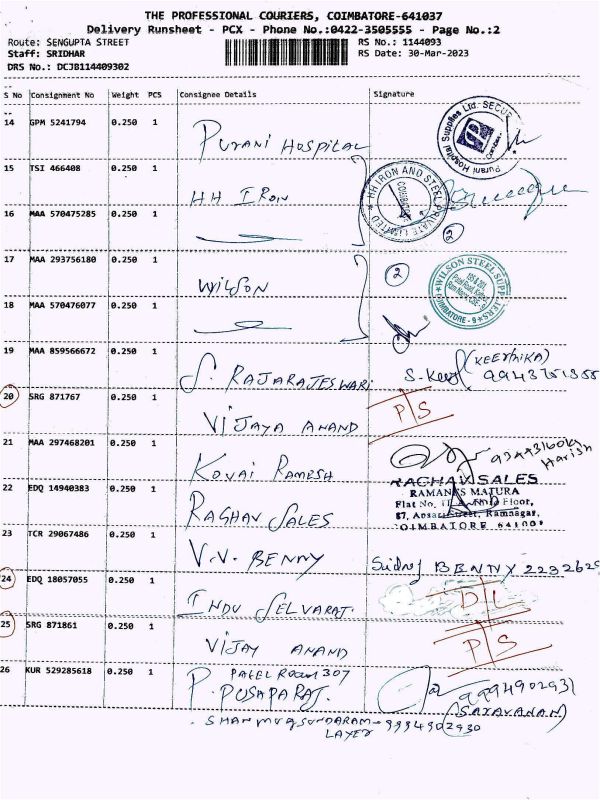 THE PROFESSIONAL COURIERS, COIMBATORE-641037
Delivery Runsheet - PCX - Phone No.:0422-3505555 - Page No.:2
Route: SENGUPTA STREET
RS No.: 1144093
Staff: SRIDHAR
RS Date: 30-Mar-2023
DRS No.: DCJB114409302
S No Consignment No Weight PCS Consignee Details Signature
14 GPM 5241794 0.250 1 PURANI HOSPITAL
Purani Hospital Supplies Ltd.
15 TSI 466408 0.250 1 HH IRON
HH IRON AND STEEL PRIVATE LIMITED
COIMBATORE
16 MAA 570475285 0.250 1
2
17 MAA 293756180 0.250 1 WILSON
2
WILSON STEEL SUPPLIERS
COIMBATORE - 9
18 MAA 570476077 0.250 1
19 MAA 859566672 0.250 1 S. RAJARAJESWARI
(KEERTHIKA)
20 SRG 871767 0.250 1 VIJAYA ANAND P/S
21 MAA 297468201 0.250 1 KOVAI RAMESH
Harish
22 EDQ 14940383 0.250 1 RAGHAV SALES
RAGHAV SALES
RAMANS MATURA
Floor,
Street, Ramnagar,
COIMBATORE
23 TCR 29067486 0.250 1 V.V. BENNY BENNY
24 EDQ 18057055 0.250 1 INDU SELVARAJ. D/L
25 SRG 871861 0.250 1 VIJAY ANAND P/S
26 KUR 529285618 0.250 1 PATEL ROOM 307
P. PUSAPARAJ.
9994902931
(SARAVANAN)
SHANMUGSUNDARAM - 9994902930
LAYER